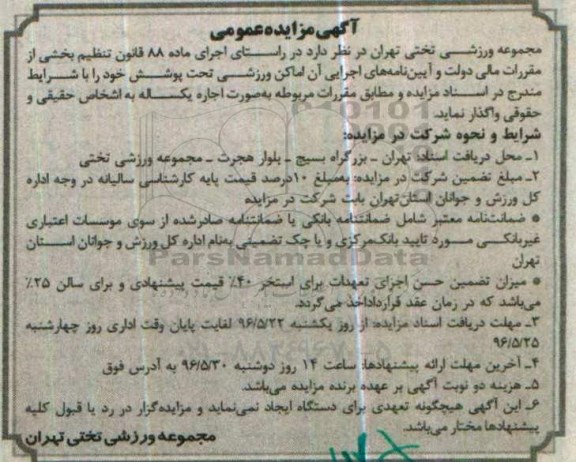 آگهی مزایده عمومی
مجموعه ورزشی تختی تهران در نظر دارد در راستای اجرای ماده ۸۸ قانون تنظیم بخشی از
مقررات مالی دولت و آیین‌نامه‌های اجرایی آن اماکن ورزشی تحت پوشش خود را با شرایط
مندرج در اسناد مزایده و مطابق مقررات مربوطه به‌صورت اجاره یکساله به اشخاص حقیقی و
حقوقی واگذار نماید.
شرایط و نحوه شرکت در مزایده:
۱ـ محل دریافت اسناد: تهران ـ بزرگراه بسیج ـ بلوار هجرت ـ مجموعه ورزشی تختی
۲ـ مبلغ تضمین شرکت در مزایده: به‌مبلغ ۱۰درصد قیمت پایه کارشناسی سالیانه در وجه اداره
کل ورزش و جوانان استان تهران بابت شرکت در مزایده
* ضمانت‌نامه معتبر شامل ضمانتنامه بانکی یا ضمانتنامه صادرشده از سوی موسسات اعتباری
غیربانکی مورد تایید بانک‌مرکزی و یا چک تضمینی به‌نام اداره کل ورزش و جوانان استان
تهران
ParsNamadData
* میزان تضمین حسن اجرای تعهدات برای استخر ۴۰٪ قیمت پیشنهادی و برای سالن ۲۵٪
می‌باشد که در زمان عقد قرارداد اخذ می‌گردد.
۳ـ مهلت دریافت اسناد مزایده: از روز یکشنبه ۹۶/۵/۲۲ لغایت پایان وقت اداری روز چهارشنبه
۹۶/۵/۲۵
۴ـ آخرین مهلت ارائه پیشنهادها: ساعت ۱۴ روز دوشنبه ۹۶/۵/۳۰ به آدرس فوق
۵ـ هزینه دو نوبت آگهی بر عهده برنده مزایده می‌باشد.
۶ـ این آگهی هیچگونه تعهدی برای دستگاه ایجاد نمی‌نماید و مزایده‌گزار در رد یا قبول کلیه
پیشنهادها مختار می‌باشد.
مجموعه ورزشی تختی تهران